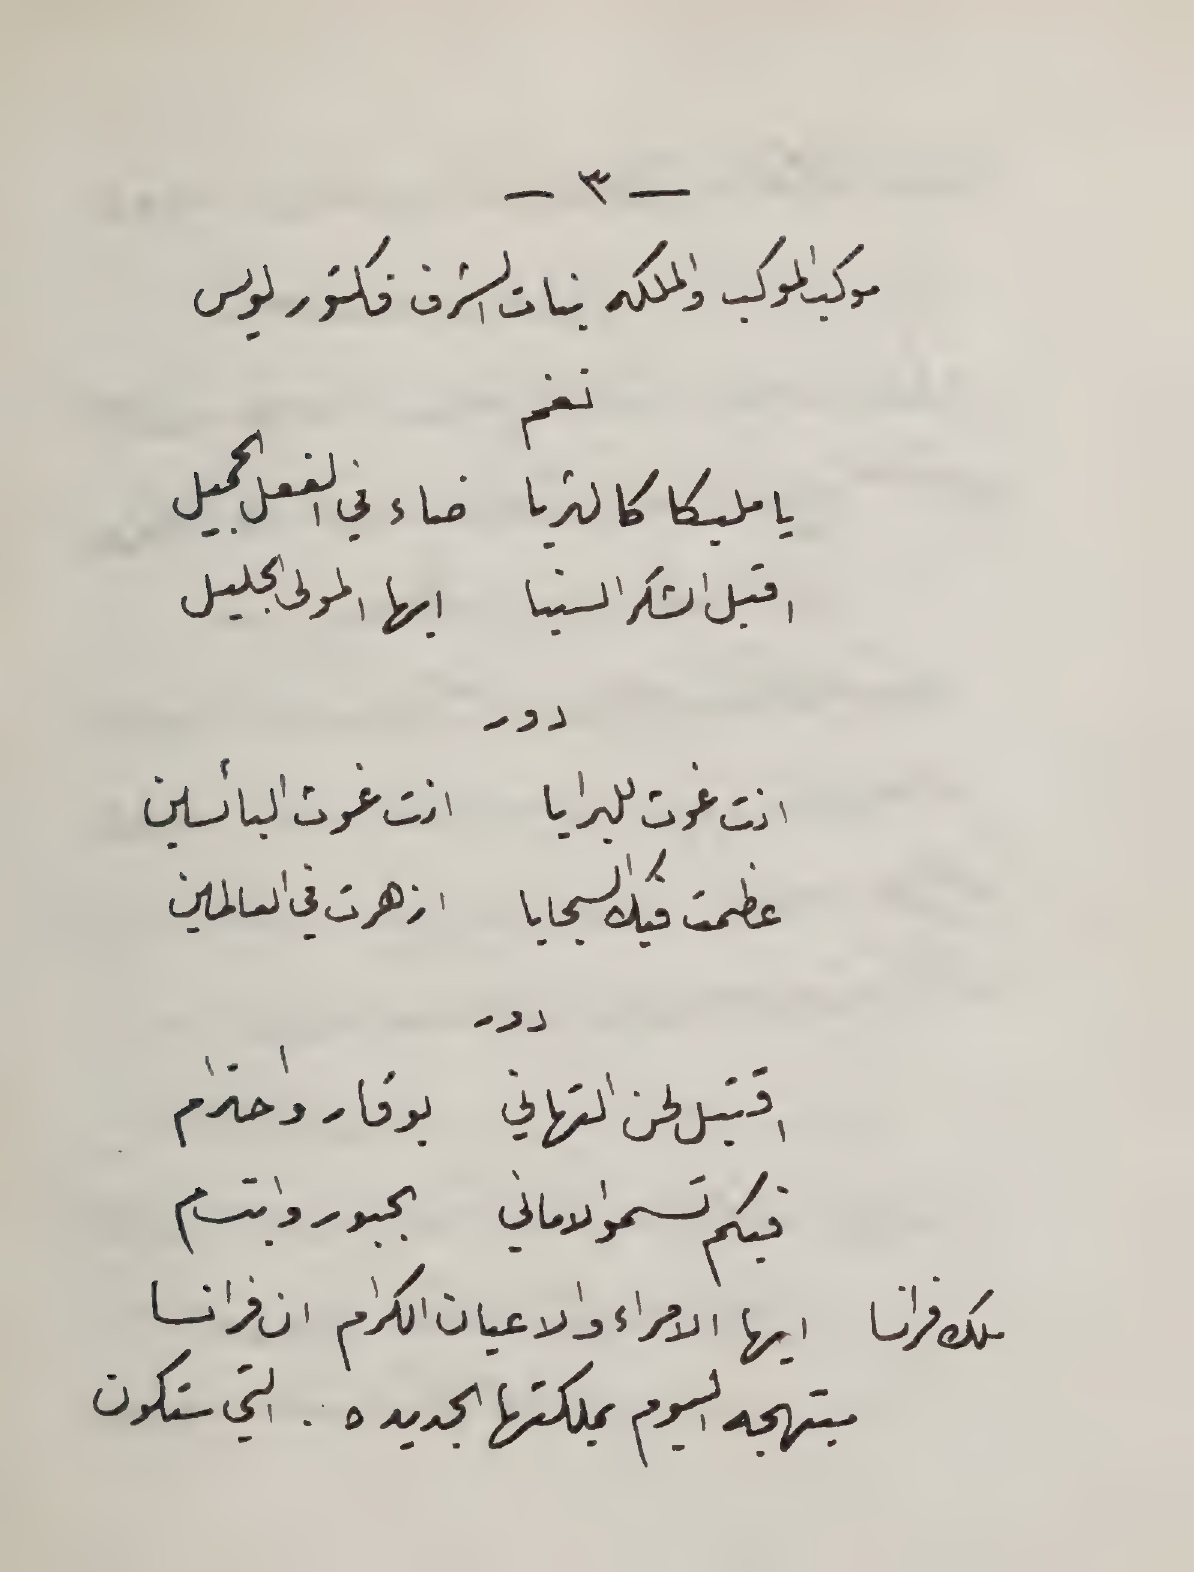 — ٣ —
موكب الموكب والملكه بنات الشرف فكتور لويس
نغم
يا مليكا كالثريا ضاء في الفعل الجميل
اقبل الشكر السنيا ايها المولى الجليل
دور
انت غوث للبرايا انت غوث البائسلين
عظمت فيك السجايا ازهرت في العالمين
دور
اقتبل لحن التهاني بوقار واحترام
فيكم تسموا الاماني بحبور وابتسام
ملك فرانسا ايها الامراء والاعيان الكرام ان فرانسا
مبتهجه اليوم بملكتها الجديده . التي ستكون